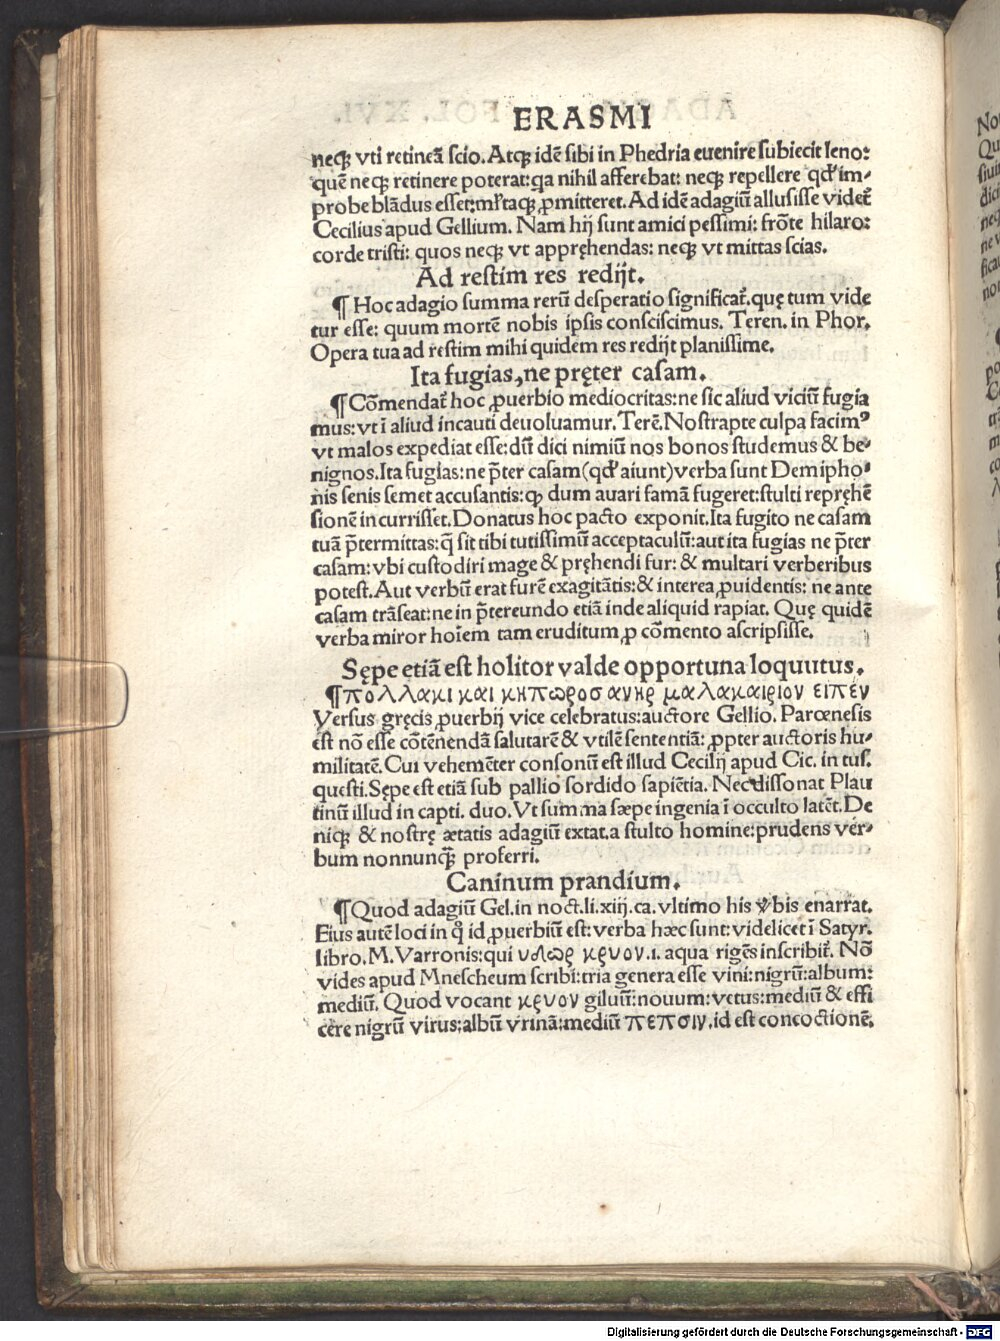 ERASMI
neqꝫ vti retineā scio. Atqꝫ idē sibi in Phedria euenire subiecit leno:
quē neqꝫ retinere poterat: qa nihil afferebat: neqꝫ repellere qđ im-
probe blādus esset: mltaqꝫ ꝓmitteret. Ad idē adagiū allusisse videt̃
Cecilius apud Gellium. Nam hij sunt amici pessimi: frōte hilaro:
corde tristi: quos neqꝫ vt appręhendas: neqꝫ vt mittas scias.
Ad restim res redijt.
¶ Hoc adagio summa rerū desperatio significat̃. quę tum vide
tur esse: quum mortē nobis ipsis consciscimus. Teren. in Phor.
Opera tua ad restim mihi quidem res redijt planissime.
Ita fugias, ne pręter casam.
¶ Cōmendat̃ hoc ꝓuerbio mediocritas: ne sic aliud viciū fugia
mus: vt ī aliud incauti deuoluamur. Terē. Nostrapte culpa facimꝰ
vt malos expediat esse: dū dici nimiū nos bonos studemus & be-
nignos. Ita fugias: ne p̄ter casam (qđ aiunt) verba sunt Demipho-
nis senis semet accusantis: ꝙ dum auari famā fugeret: stulti repręhē
sionē incurrisset. Donatus hoc pacto exponit. Ita fugito ne casam
tuā p̄termittas: q̄ sit tibi tutissimū acceptaculū: aut ita fugias ne p̄ter
casam: vbi custodiri mage & pręhendi fur: & multari verberibus
potest. Aut verbū erat furē exagitātis: & interea ꝓuidentis: ne ante
casam trāseat: ne in p̄tereundo etiā inde aliquid rapiat. Quę quidē
verba miror hoīem tam eruditum ꝓ cōmento ascripsisse.
Sępe etiā est holitor valde opportuna loquutus.
¶ πολλακι και κηπωροσ ανηρ μαλακαιριον ειπέν
Versus gręcis ꝓuerbij vice celebratus: auctore Gellio. Parœnesis
est nō esse cōtēnendā salutarē & vtilē sententiā: ꝓpter auctoris hu-
militatē. Cui vehemēter consonū est illud Cecilij apud Cic. in tus.
questi. Sępe est etiā sub pallio sordido sapiētia. Nec dissonat Plau
tinū illud in capti. duo. Vt summa sæpe ingenia ī occulto latēt. De
niqꝫ & nostrę ætatis adagiū extat. a stulto homine: prudens ver-
bum nonnunꝙ̄ proferri.
Caninum prandium.
¶ Quod adagiū Gel. in noct. li. xiij. ca. vltimo his v̄bis enarrat.
Eius autē loci in q̊ id ꝓuerbiū est: verba hæc sunt: videlicet ī Satyr.
libro. M. Varronis: qui υδωρ κρυον .i. aqua rigēs inscribit̃. Nō
vides apud Mnescheum scribi: tria genera esse vini: nigrū: album:
mediū. Quod vocant κρυον giluū: nouum: vetus: mediū & effi
cere nigrū virus: albū vrinā: mediū πεπσιν. id est concoctionē.
Digitalisierung gefördert durch die Deutsche Forschungsgemeinschaft - DFG